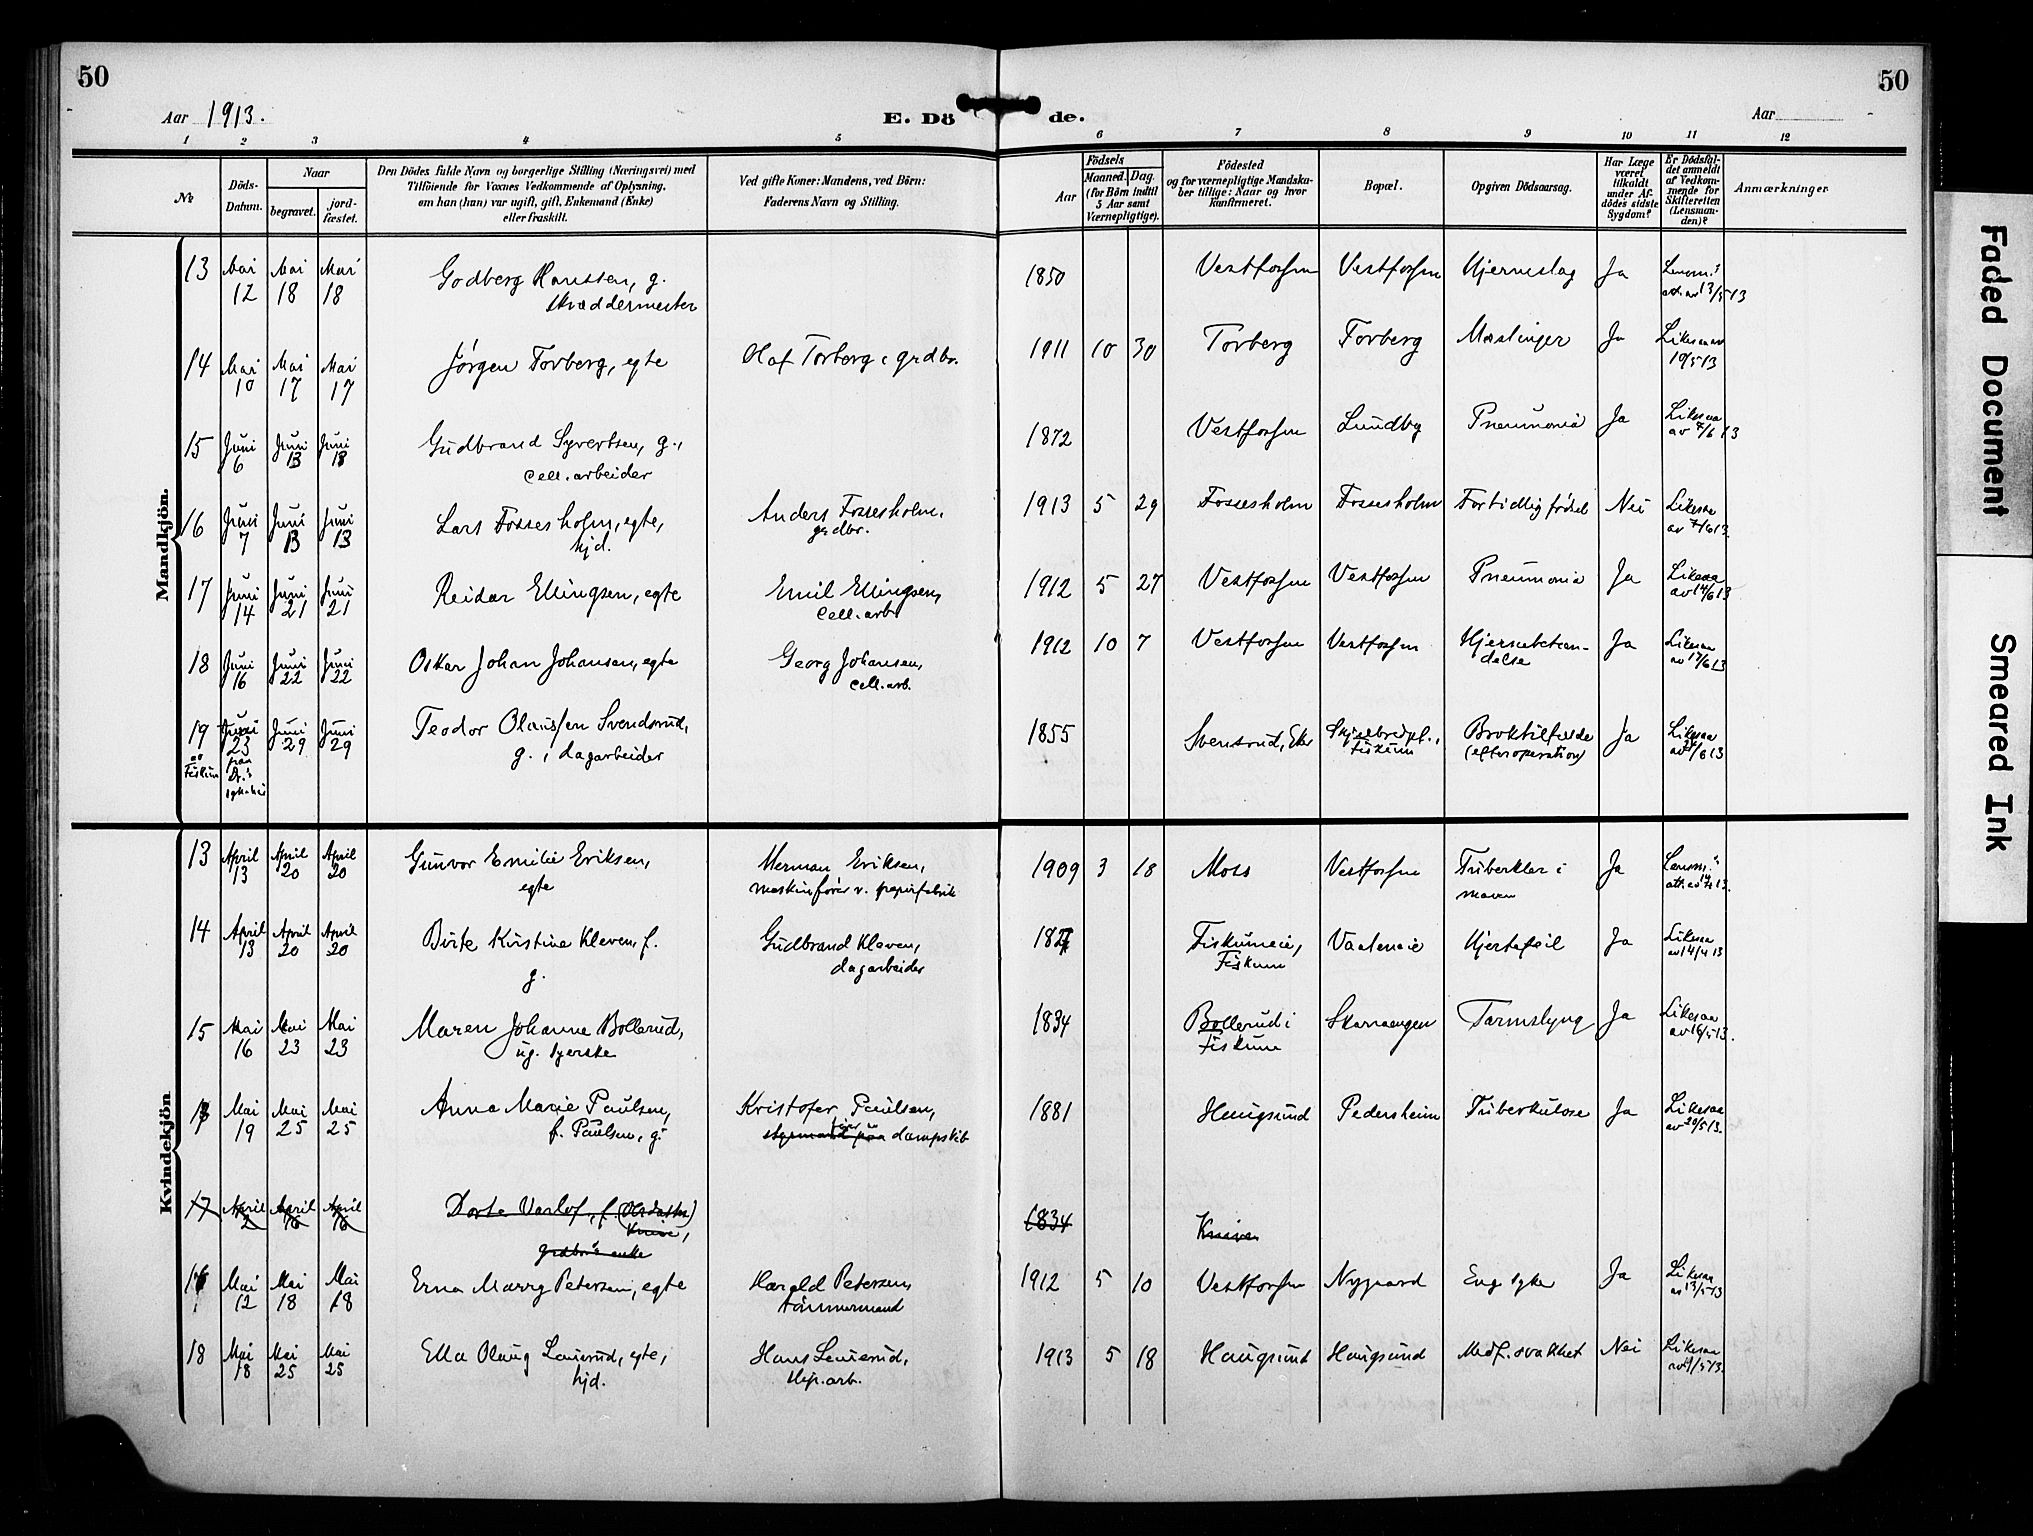 50
50
Aar 1913.
E. Dö de.
Aar
1 2 3 4 5 6 7 8 9 10 11 12
№
Döds-Datum.
Naar
begravet.
jord-fæstet.
Den Dödes fulde Navn og borgerlige Stilling (Næringsvei) med
Tilföiende for Voxnes Vedkommende af Oplysning,
om han (hun) var ugift, gift, Enkemand (Enke)
eller fraskilt.
Ved gifte Koner: Mandens, ved Börn:
Faderens Navn og Stilling.
Födsels
Aar
Maaned.
Dag.
(for Börn indtil
5 Aar samt
Værnepligtige).
Födested
og for værnepligtige Mandska-
ber tillige: Naar og hvor
konfirmeret.
Bopæl.
Opgiven Dödsaarsag.
Har Læge
været
tilkaldt
under Af-
dödes sidste
Sygdom?
Er Dödsfal-
det anmeldt
af Vedkom-
mende for
Skifteretten
(Lensman-
den)?
Anmærkninger
Mandkjön.
13 Mai 12 Mai 18 Mai 18 Godberg Hanssen, g. skræddermester 1850 Vestfossen Vestfossen Hjerneslag Ja 13/5 13
14 Mai 10 Mai 17 Mai 17 Jørgen Torberg, egte Olaf Torberg, grdbr. 1911 10 30 Torberg Torberg Mæslinger Ja Likesaa av 10/5 13
15 Juni 6 Juni 13 Juni 13 Gudbrand Syvertsen, g., cell. arbeider 1872 Vestfossen Lundby Pneumonia Ja Likesaa av 7/6 13
16 Juni 7 Juni 13 Juni 13 Lars Fossesholm, egte, hjd. Anders Fossesholm, grdbr. 1913 5 29 Fossesholm Fossesholm Fortidlig fødsel Nei Likesaa av 7/6 13
17 Juni 14 Juni 21 Juni 21 Reidar Ellingsen, egte Emil Ellingsen, cell. arb. 1912 5 27 Vestfossen Vestfossen Pneumonia Ja Likesaa av 14/6 13
18 Juni 16 Juni 22 Juni 22 Oskar Johan Johansen, egte Georg Johansen, cell. arb. 1912 10 7 Vestfossen Vestfossen Hjernebetændelse Ja Likesaa av 17/6 13
19 av Fiskum Juni 23 Juni 29 Juni 29 Teodor Olaussen Svendsrud, g., dagarbeider 1855 Svensrud, Eker Fiskum Broktilfælde (efter operation) Ja Likesaa
Kvindekjön
13 April 13 April 20 April 20 Gunvor Emilie Eriksen, egte Herman Eriksen, maskinfører v. papirfabrik 1909 3 18 Moss Vestfossen Tuberkler i maven Ja
14 April 13 April 20 April 20 Birte Kirstine Kleven, f. g. Gudbrand Kleven, dagarbeider Fiskumeie, Fiskum Hjertefeil Ja Likesaa av 14/4 13
15 Mai 16 Mai 23 Mai 23 Maren Johanne Bollerud, ug. syerske 1834 Bollerud i Fiskum Skaraengen Tarmslyng Ja Likesaa av 16/5 13.
Mai 19 Mai 25 Mai 25 Anna Marie Paulsen, f. Paulsen, g. Kristofer Paulsen, styrmand paa dampskib 1881 Haugsund Pedersheim Tuberkulose Ja Likesaa av 20/5 13.
17 April 2 April April Dorte Varlo, f. (Olsdatter) Knive, grdbr's enke 1834 Kniven
Mai 12 Mai 18 Mai 18 Erna Marry Petersen, egte Harald Petersen, tømmermand 1912 5 10 Vestfossen Nygaard Eng. syke Ja Likesaa av 13/5 13
18 Mai 18 Mai 25 Mai 25 Ella Olaug Lauerud, egte, hjd. Hans Lauerud, slip. arb. 1913 5 18 Haugsund Haugsund Medf. svakhet Nei Likesaa
Faded Document
Smeared Ink